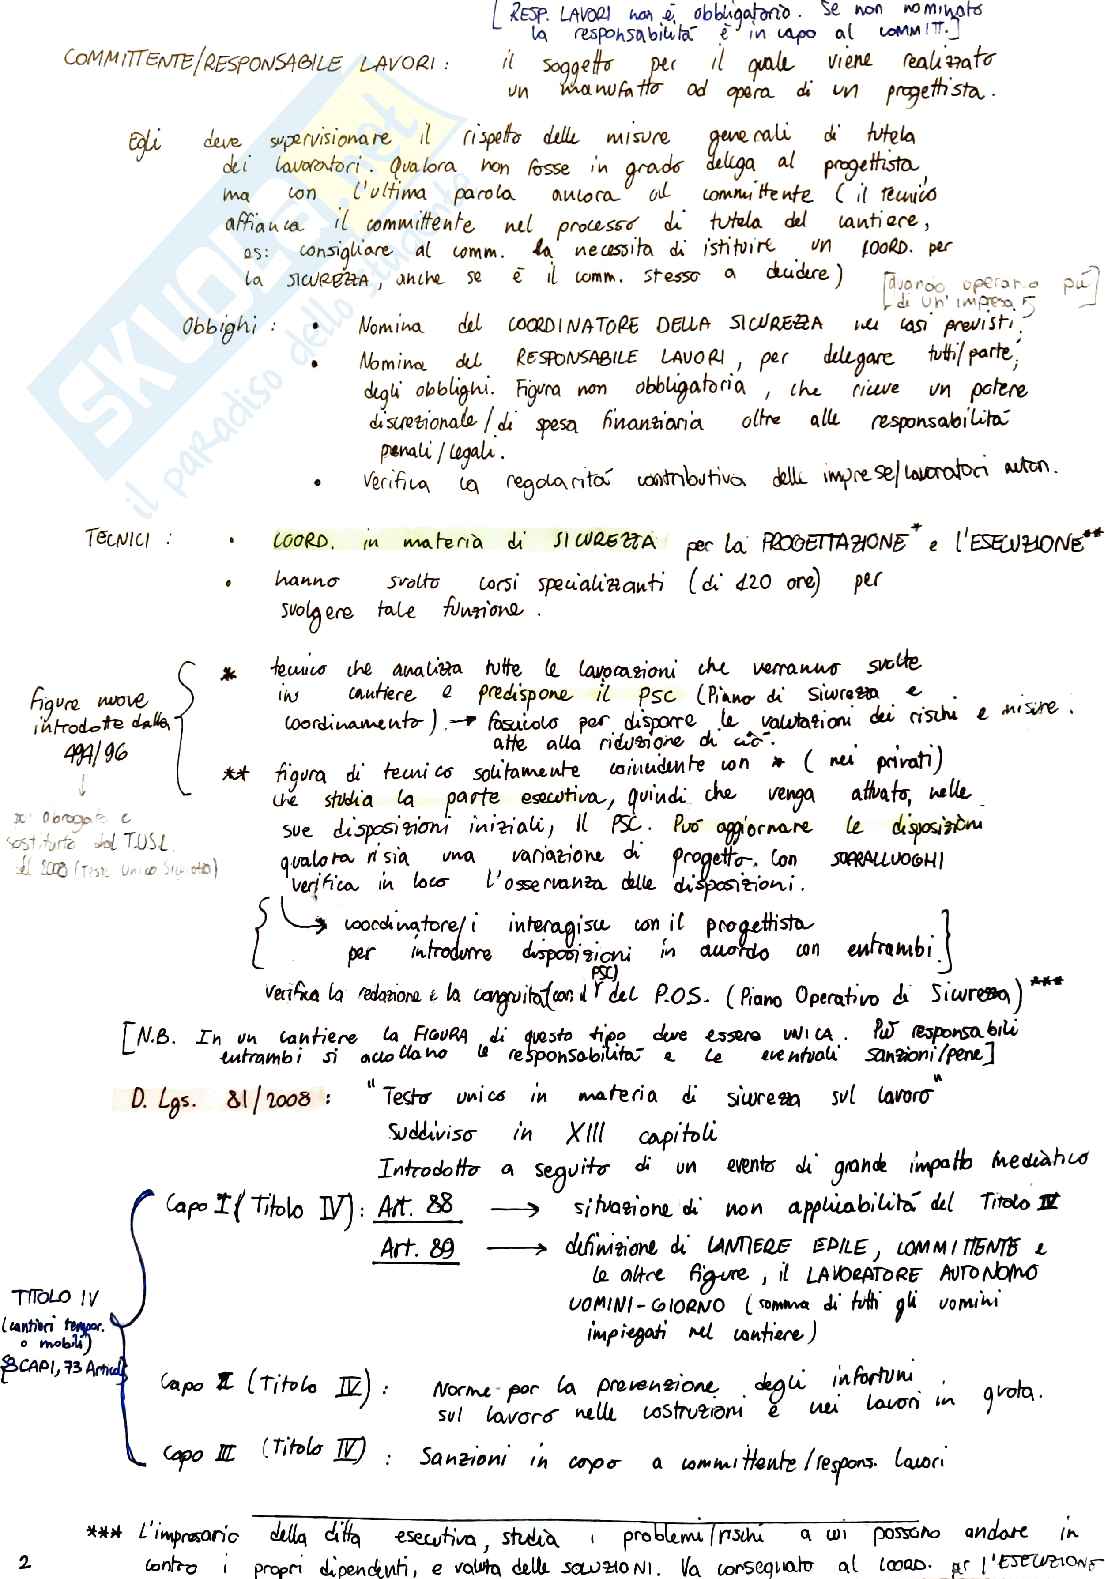 [RESP. LAVORI non è obbligatorio. Se non nominato
la responsabilità è in capo al COMMITT.]
COMMITTENTE/RESPONSABILE LAVORI : il soggetto per il quale viene realizzato
un manufatto ad opera di un progettista.
Egli deve supervisionare il rispetto delle misure generali di tutela
dei lavoratori. Qualora non fosse in grado delega al progettista,
ma con l'ultima parola ancora al committente (il tecnico
affianca il committente nel processo di tutela del cantiere,
es: consigliare al comm. la necessita di istituire un COORD. per
la SICUREZZA, anche se è il comm. stesso a decidere)
[quando operano più
di un'impresa]
Obbighi : • Nomina del COORDINATORE DELLA SICUREZZA nei casi previsti;
• Nomina del RESPONSABILE LAVORI, per delegare tutti/parte,
degli obblighi. Figura non obbligatoria, che riceve un potere
discrezionale/di spesa finanziaria oltre alle responsabilità
penali/legali.
• Verifica la regolarità contributiva delle imprese/lavoratori auton.
TECNICI : • COORD. in materia di SICUREZZA per la PROGETTAZIONE* e l'ESECUZIONE**
• hanno svolto corsi specializzanti (di 120 ore) per
svolgere tale funzione.
Figure nuove
introdotte dalla
494/96
↓
poi abrogata e
sostituita dal T.U.S.L.
del 2008 (Testo Unico Sic.)
* tecnico che analizza tutte le lavorazioni che verranno svolte
in cantiere e predispone il PSC (Piano di Sicurezza e
coordinamento). → fascicolo per disporre le valutazioni dei rischi e misure.
atte alla riduzione di ciò.
** figura di tecnico solitamente coincidente con * (nei privati)
che studia la parte esecutiva, quindi che venga attuato, nelle
sue disposizioni iniziali, il PSC. Può aggiornare le disposizioni
qualora ci sia una variazione di progetto. Con SOPRALLUOGHI
verifica in loco l'osservanza delle disposizioni.
{ → coordinatore/i interagisce con il progettista
per introdurre disposizioni in accordo con entrambi.]
Verifica la redazione e la congruità (con il PSC) del P.O.S. (Piano Operativo di Sicurezza)***
[N.B. In un cantiere la FIGURA di questo tipo deve essere UNICA. Più responsabili
entrambi si accollano le responsabilità e le eventuali sanzioni/pene]
D. Lgs. 81/2008 : "Testo unico in materia di sicurezza sul lavoro"
Suddiviso in XIII capitoli
Introdotto a seguito di un evento di grande impatto mediatico
TITOLO IV
(cantieri tempor.
o mobili)
CAPI, 73 Articoli
Capo I (Titolo IV): Art. 88 → situazione di non applicabilità del Titolo IV
Art. 89 → definizione di CANTIERE EDILE, COMMITTENTE e
le altre figure, il LAVORATORE AUTONOMO
UOMINI-GIORNO (somma di tutti gli uomini
impiegati nel cantiere)
Capo II (Titolo IV) : Norme per la prevenzione degli infortuni
sul lavoro nelle costruzioni e nei lavori in quota.
Capo III (Titolo IV) : Sanzioni in capo a committente/respons. lavori
*** L'impresario della ditta esecutiva, studia i problemi/rischi a cui possono andare in
contro i propri dipendenti, e valuta delle SOLUZIONI. Va consegnato al COORD. per l'ESECUZIONE
2
SKUOLA.net
il paradiso dello studente